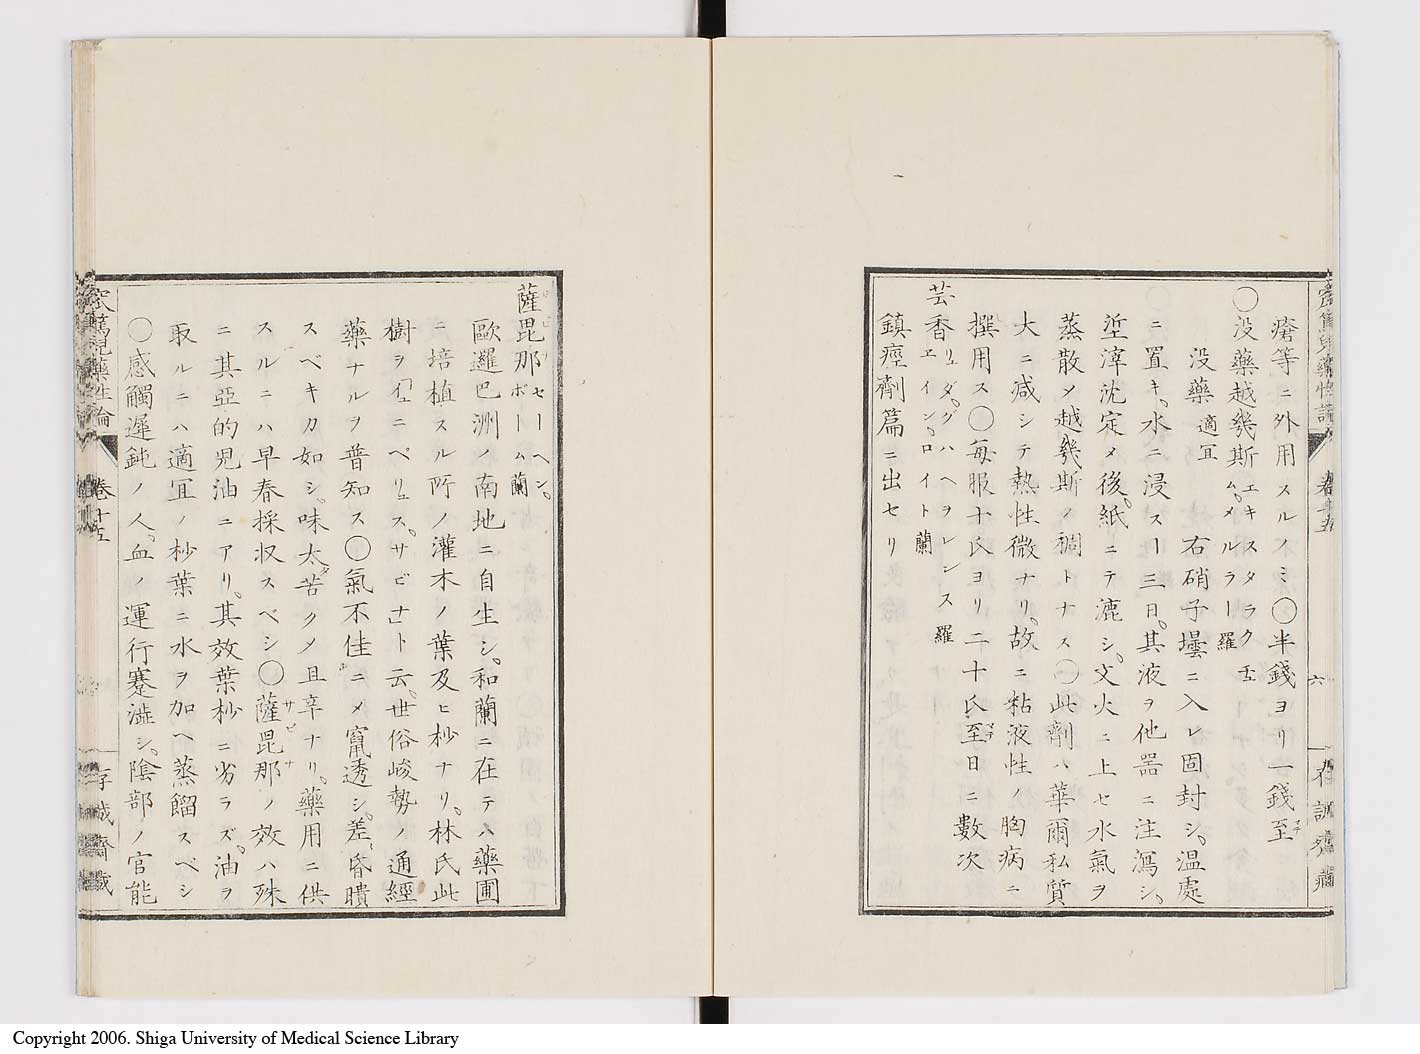 瘡等ニ外用スルノミ◯半錢ヨリ一錢至マデ
◯没藥越幾斯エキスタラクムメルラー羅
没藥適冝 右硝子壜ニ入レ固封シ温處
ニ置キ水ニ浸スヿ三日其液ヲ他器ニ注瀉シ
坙滓沈定メ後紙ニテ漉シ文火ニ上セ水氣ヲ
蒸散メ越幾斯ノ稠トナス◯此劑ハ華爾私質
大ニ减シテ熱性微ナリ故ニ粘液性ノ胸病ニ
撰用ス◯毎服十氏ヨリ二十氏至マデ日ニ數次
芸香リュダグハヘヲレンス羅
エインロイト蘭
鎮痙劑篇ニ出セリ
卷十五
六
薩毘那セーヘン
ボーム蘭
歐邏巴洲ノ南地ニ自生シ和蘭ニ在テハ藥圃
ニ培植スル所ノ灌木ノ葉及ヒ杪ナリ林氏此
樹ヲイユニペリュスサビナト云世俗峻勢ノ通經
藥ナルヲ普知ス◯氣不佳ニメ竄透シ差昏瞶
スベキカ如シ味太タ苦クメ且辛ナリ藥用ニ供
スルニハ早春採収スベシ◯薩毘那サビナノ效ハ殊
ニ其亞的児油ニアリ其效葉杪ニ劣ラズ油ヲ
取ルニハ適冝ノ杪葉ニ水ヲ加ヘ蒸餾スベシ
◯感觸遲鈍ノ人血ノ運行蹇澁シ陰部ノ官能
卷十五